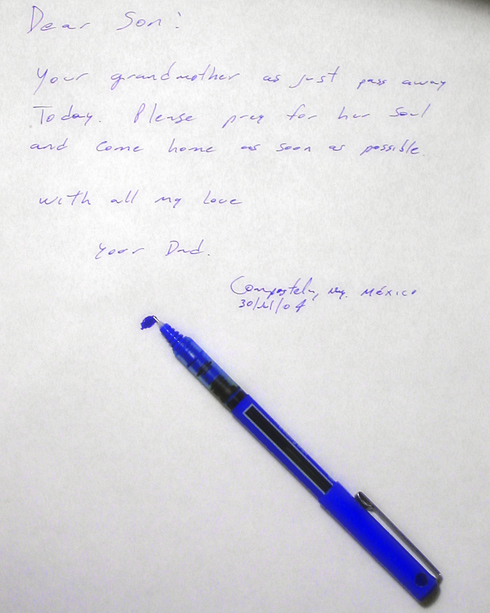 Dear Son:
Your grandmother as just pass away
Today. Please pray for her soul
and come home as soon as possible.
with all my love
your Dad.
Compostela, Ny. México